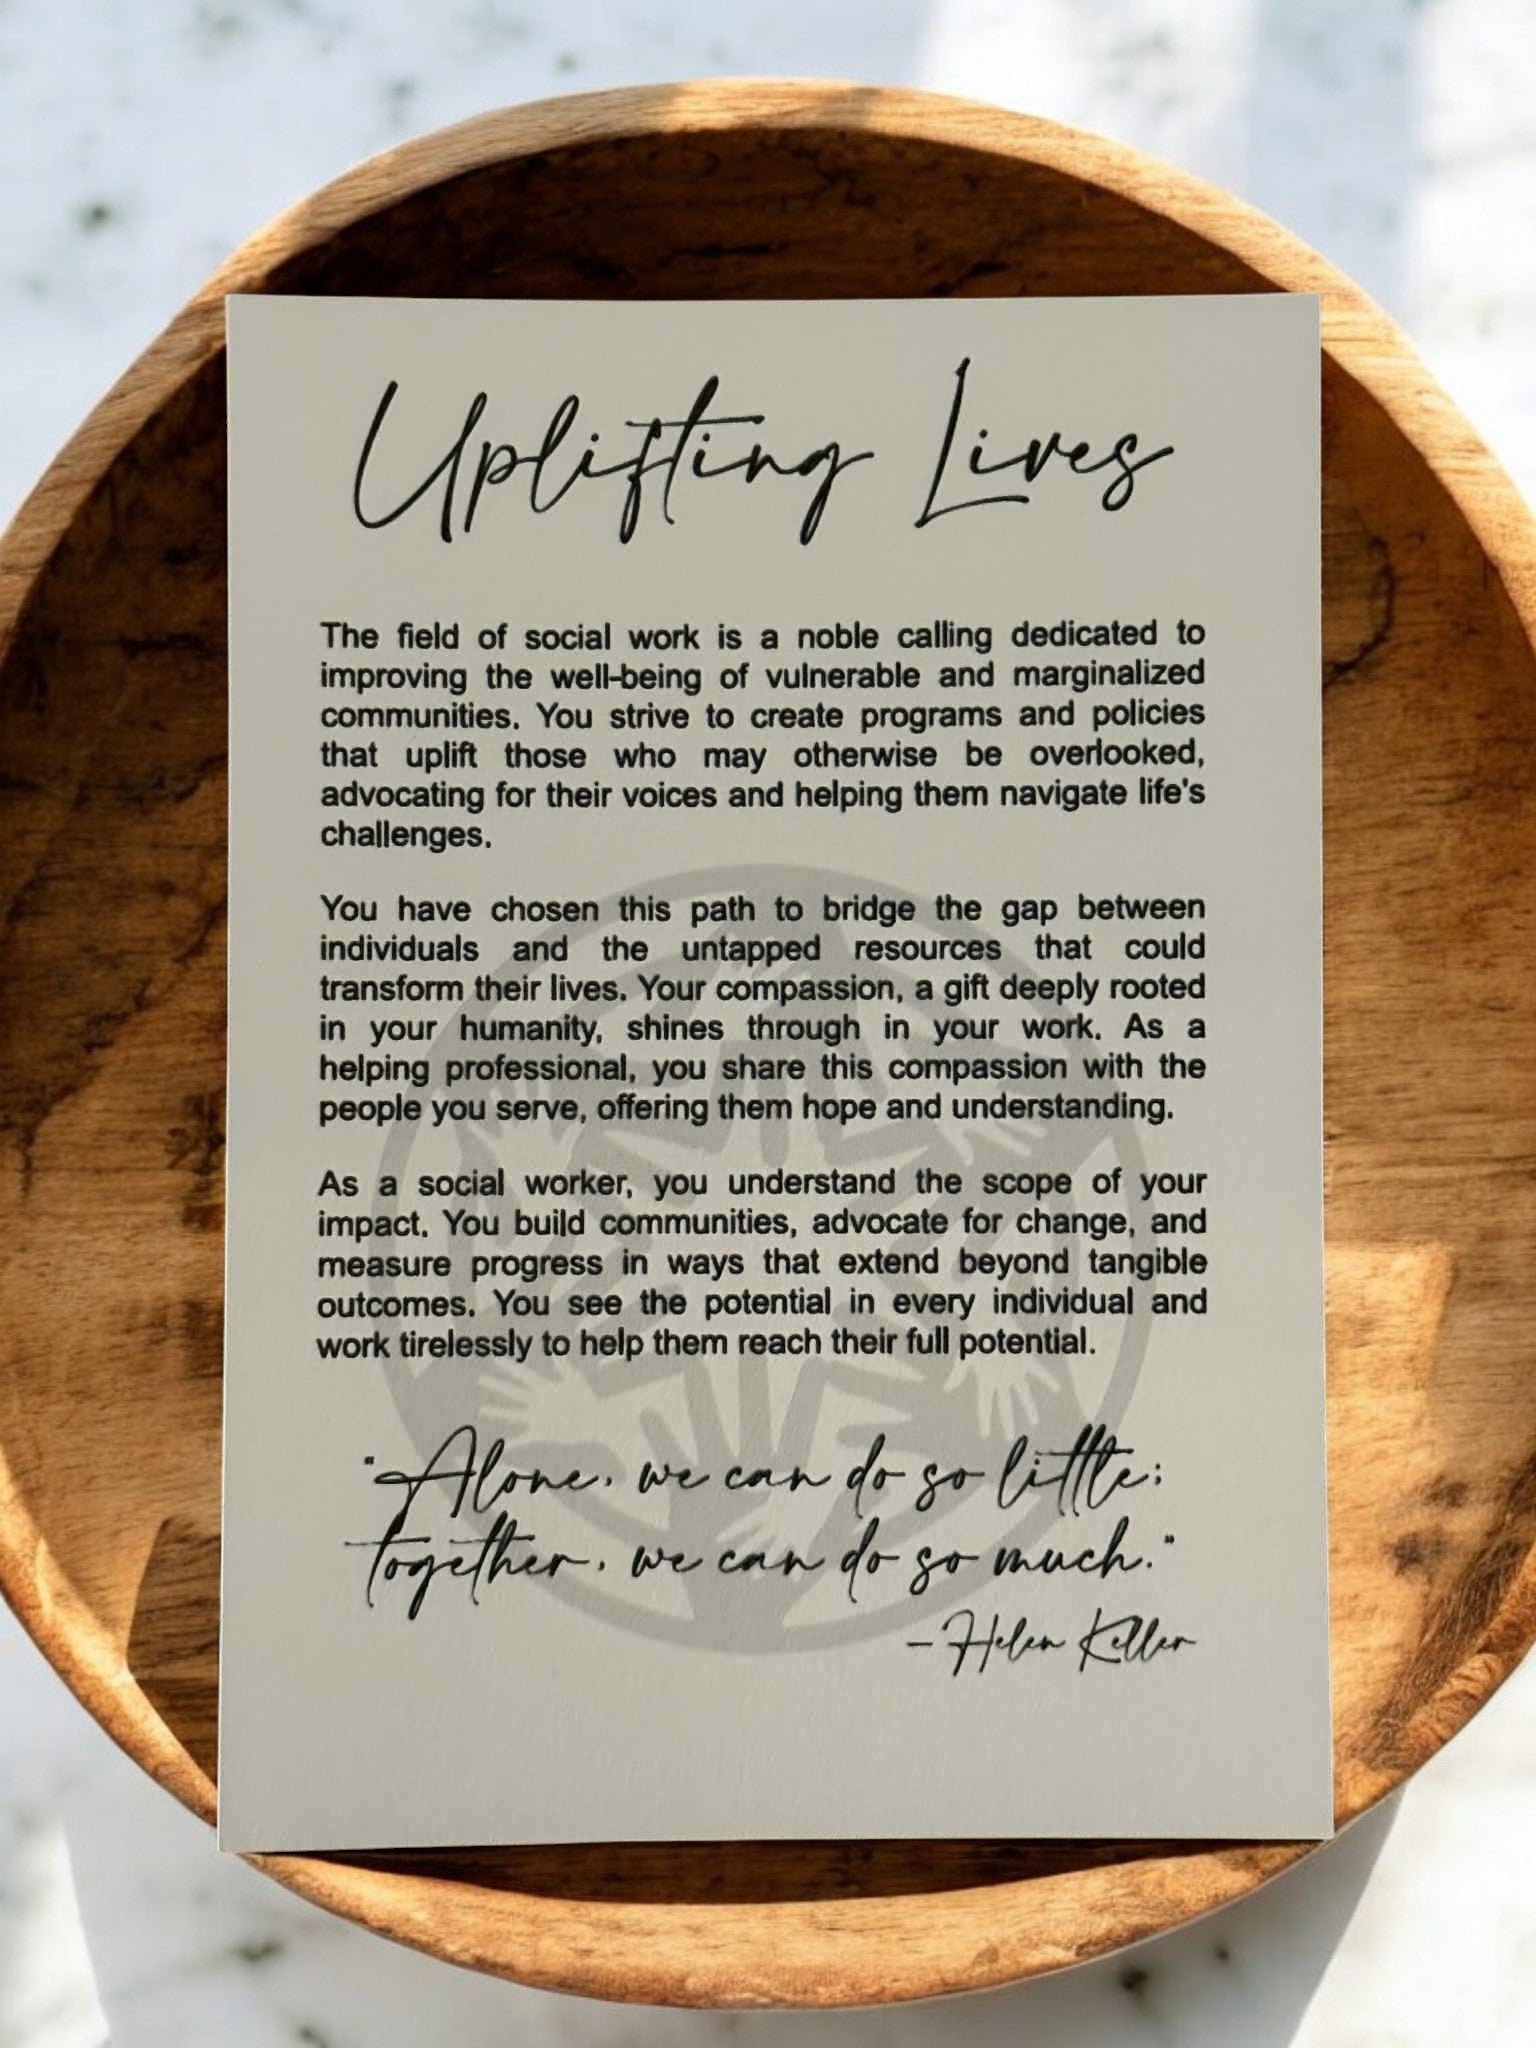 Uplifting Lives
The field of social work is a noble calling dedicated to
improving the well-being of vulnerable and marginalized
communities. You strive to create programs and policies
that uplift those who may otherwise be overlooked,
advocating for their voices and helping them navigate life's
challenges.
You have chosen this path to bridge the gap between
individuals and the untapped resources that could
transform their lives. Your compassion, a gift deeply rooted
in your humanity, shines through in your work. As a
helping professional, you share this compassion with the
people you serve, offering them hope and understanding.
As a social worker, you understand the scope of your
impact. You build communities, advocate for change, and
measure progress in ways that extend beyond tangible
outcomes. You see the potential in every individual and
work tirelessly to help them reach their full potential.
"Alone, we can do so little;
together, we can do so much."
– Helen Keller